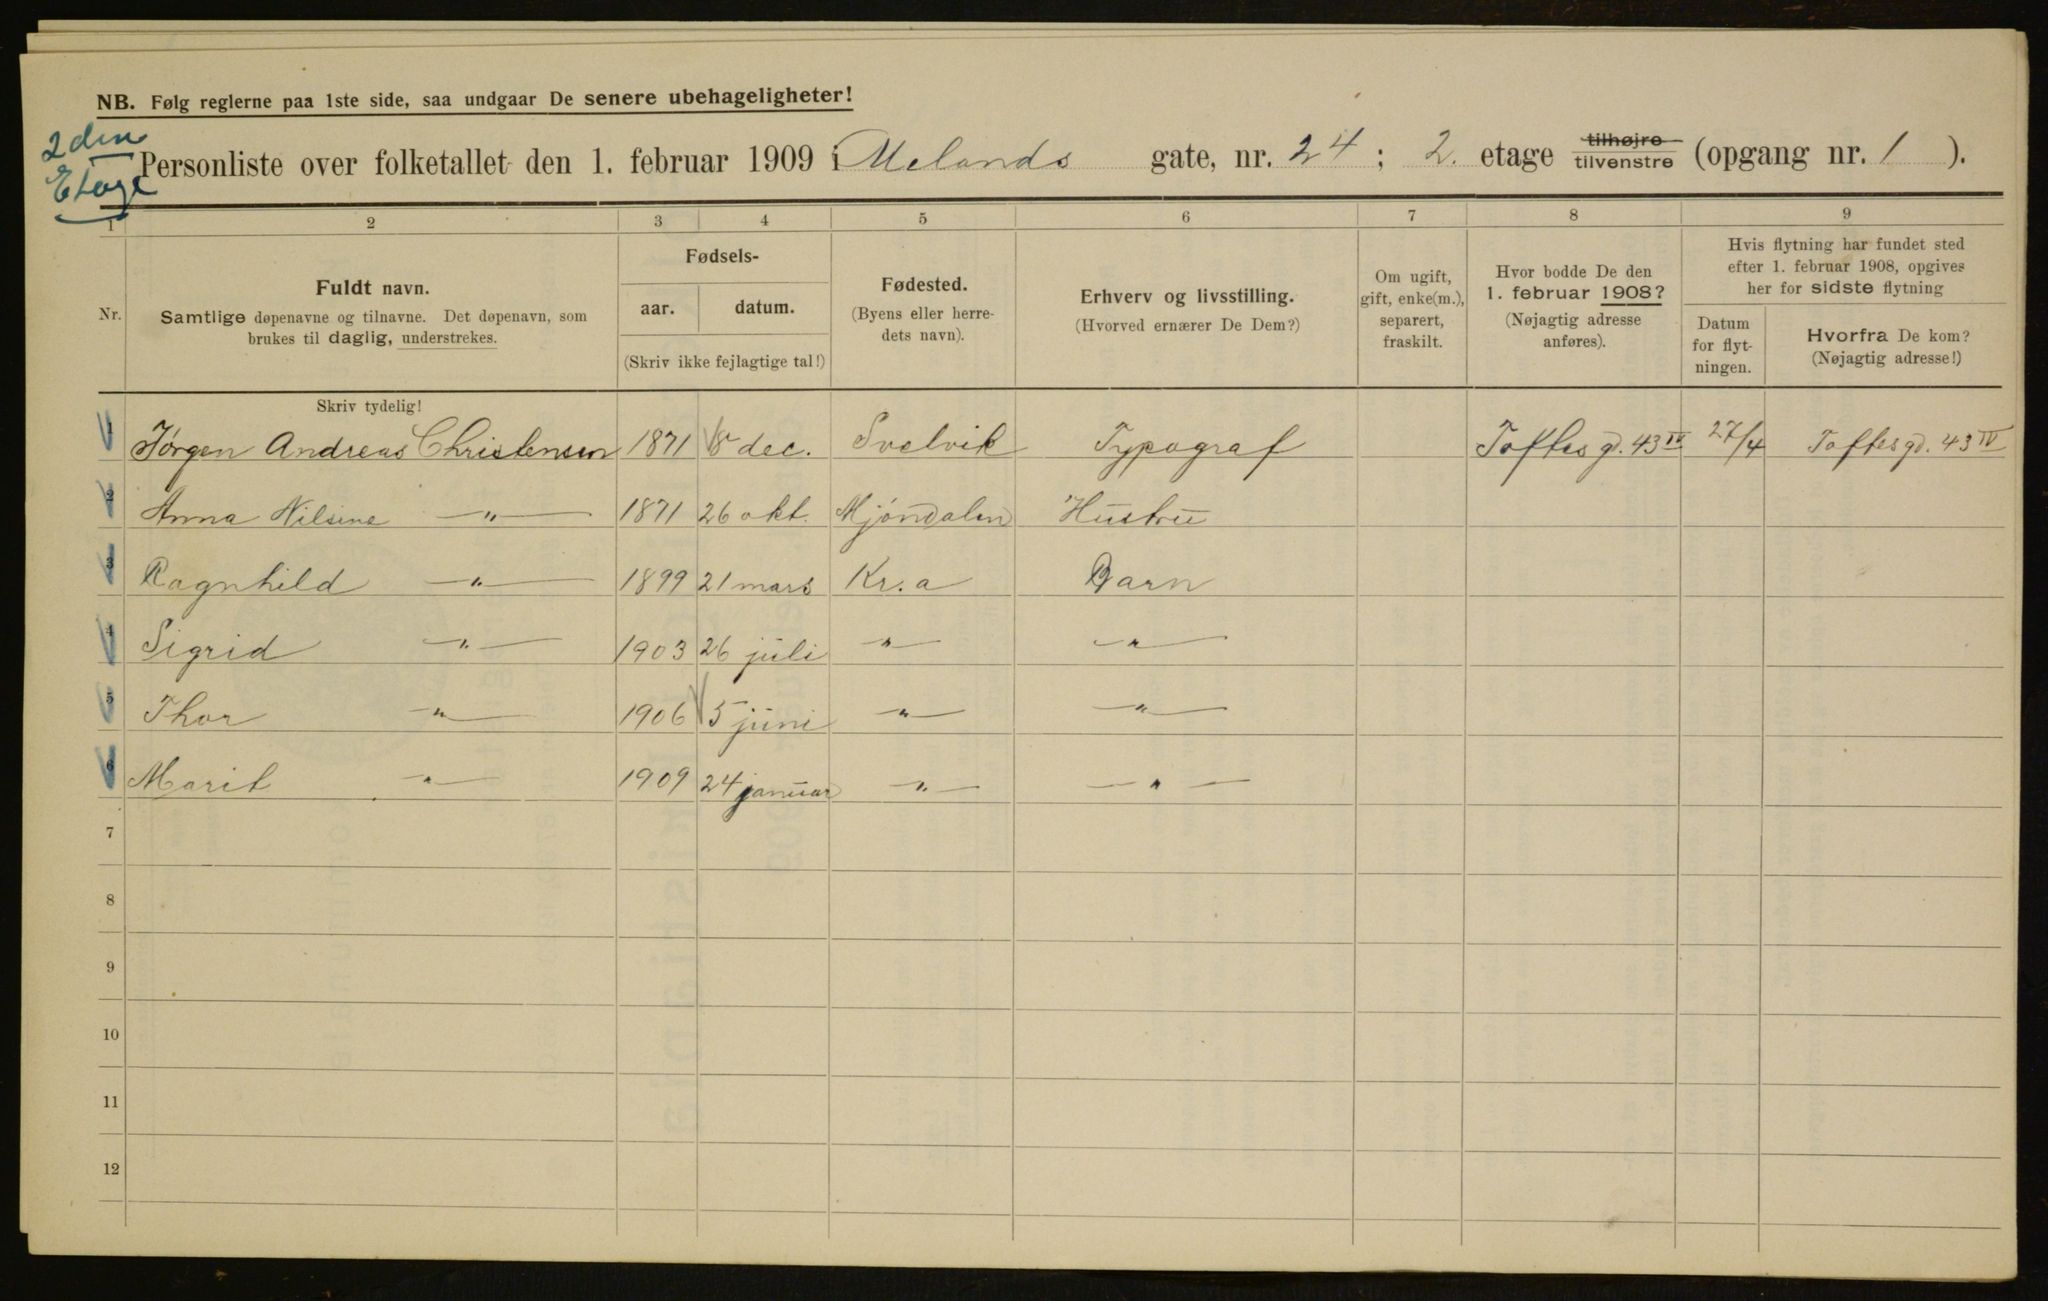 NB. Følg reglerne paa 1ste side, saa undgaar De senere ubehageligheter!
2den Etage
Personliste over folketallet den 1. februar 1909 i Uelands gate, nr. 24; 2. etage tilhøjre tilvenstre (opgang nr. 1 ).
1 2 3 4 5 6 7 8 9
Nr.
Fuldt navn.
Samtlige døpenavne og tilnavne. Det døpenavn, som
brukes til daglig, understrekes.
Fødsels-
aar. datum.
(Skriv ikke fejlagtige tal!)
Fødested.
(Byens eller herre-
dets navn).
Erhverv og livsstilling.
(Hvorved ernærer De Dem?)
Om ugift,
gift, enke(m.),
separert,
fraskilt.
Hvor bodde De den
1. februar 1908?
(Nøjagtig adresse
anføres).
Hvis flytning har fundet sted
efter 1. februar 1908, opgives
her for sidste flytning
Datum
for flyt-
ningen.
Hvorfra De kom?
(Nøjagtig adresse!)
Skriv tydelig!
1 Jörgen Andreas Christensen 1871 8 dec. Svelvik Typograf Toftes gd. 43 IV 27/4 Toftes gd. 43 IV
2 Anna Nilsine —„— 1871 26 okt. Mjöndalen Hustru
3 Ragnhild —„— 1899 21 mars Kr.a Barn
4 Sigrid —„— 1903 26 juli —„— —„—
5 Thor —„— 1906 5 juni —„— —„—
6 Marit —„— 1909 24 januar —„— —„—
7
8
9
10
11
12